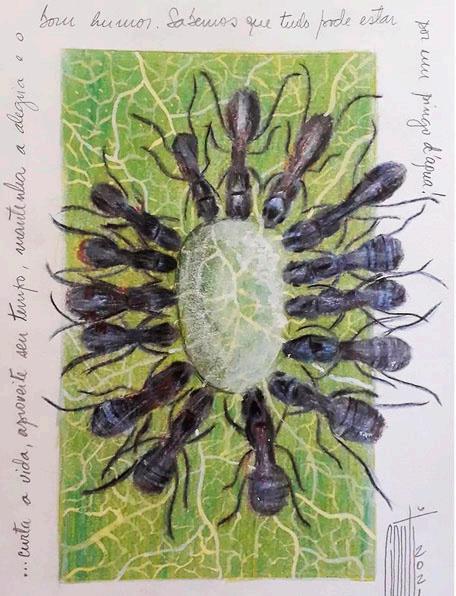 ...curta a vida, aproveite seu tempo, mantenha a alegria e o
bom humor. Sabemos que tudo pode estar
por um pingo d'água!